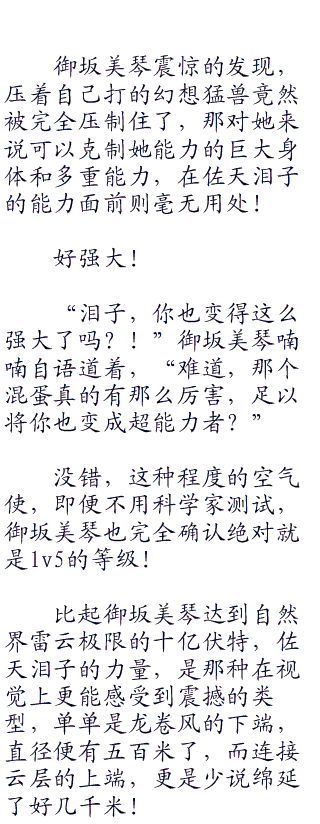 御坂美琴震惊的发现，
压着自己打的幻想猛兽竟然
被完全压制住了，那对她来
说可以克制她能力的巨大身
体和多重能力，在佐天泪子
的能力面前则毫无用处！
好强大！
“泪子，你也变得这么
强大了吗？！”御坂美琴喃
喃自语道着，“难道，那个
混蛋真的有那么厉害，足以
将你也变成超能力者？”
没错，这种程度的空气
使，即便不用科学家测试，
御坂美琴也完全确认绝对就
是lv5的等级！
比起御坂美琴达到自然
界雷云极限的十亿伏特，佐
天泪子的力量，是那种在视
觉上更能感受到震撼的类
型，单单是龙卷风的下端，
直径便有五百米了，而连接
云层的上端，更是少说绵延
了好几千米！